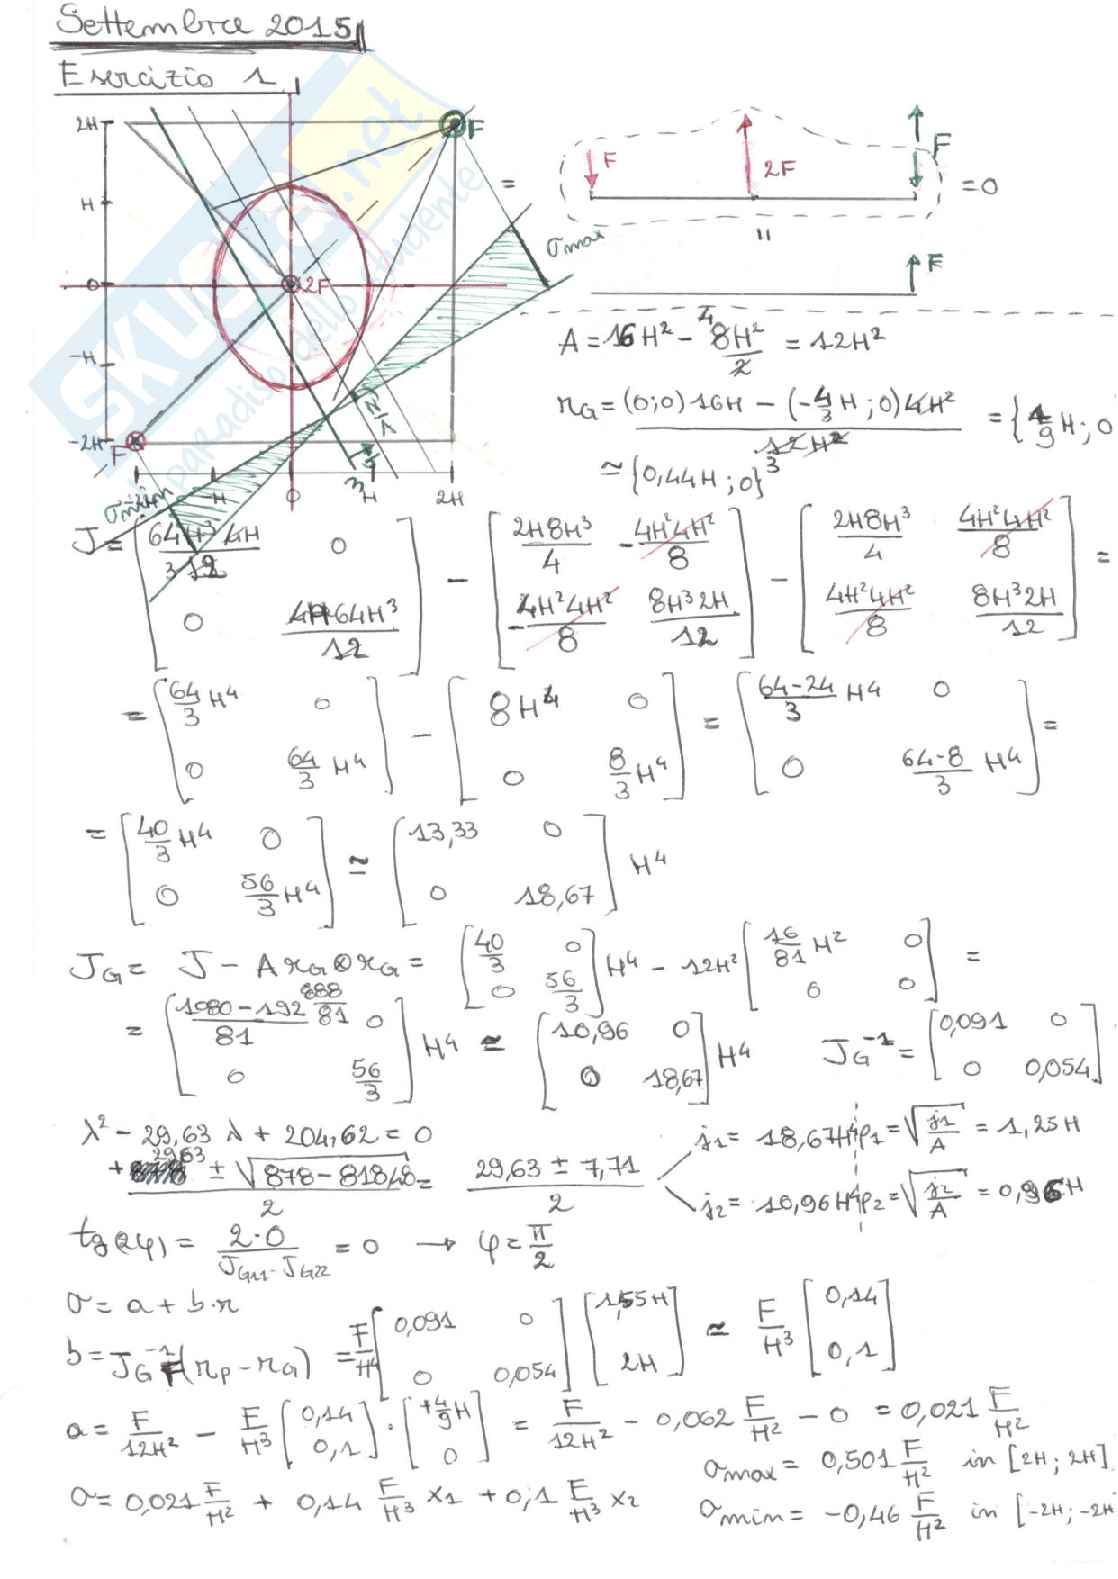 Settembre 2015
Esercizio 1
2H
H
0
-H
-2H
F
2F
F
σmax
σmin
-2H
-H
0
H
2H
=
F
2F
F
= 0
"
F
A = 16H² - 8H²/2 = 12H²
r_G = (0;0)16H - (-4/3 H; 0)4H² / 12H² = {4/9 H; 0
≃ {0,44H; 0}
J = [64H³ 4H/12 0; 0 4H 64H³/12] - [2H8H³/4 -4H²4H²/8; -4H²4H²/8 8H³2H/12] - [2H8H³/4 4H²4H²/8; 4H²4H²/8 8H³2H/12] =
= [64/3 H⁴ 0; 0 64/3 H⁴] - [8H⁴ 0; 0 8/3 H⁴] = [64-24/3 H⁴ 0; 0 64-8/3 H⁴] =
= [40/3 H⁴ 0; 0 56/3 H⁴] ≃ [13,33 0; 0 18,67] H⁴
J_G = J - A r_G ⊗ r_G = [40/3 0; 0 56/3] H⁴ - 12H² [16/81 H² 0; 0 0] =
= [1080-192/81 888/81 0; 0 56/3] H⁴ ≃ [10,96 0; 0 18,67] H⁴ J_G⁻¹ = [0,091 0; 0 0,054]
λ² - 29,63 λ + 204,62 = 0
+29,63 ± √878-818,48 / 2 = 29,63 ± 7,71 / 2
j₁ = 18,67H⁴ ρ₁ = √j₁/A = 1,25H
j₂ = 10,96H⁴ ρ₂ = √j₂/A = 0,96H
tg(2φ) = 2·0 / J_G11 - J_G22 = 0 → φ = π/2
σ = a + b·r
b = J_G⁻¹ F(r_P - r_G) = F/H⁴ [0,091 0; 0 0,054] [1,55H; 2H] ≃ F/H³ [0,14; 0,1]
a = F/12H² - F/H³ [0,14; 0,1] · [+4/9 H; 0] = F/12H² - 0,062 F/H² - 0 = 0,021 F/H²
σ = 0,021 F/H² + 0,14 F/H³ x₁ + 0,1 F/H³ x₂
σmax = 0,501 F/H² in [2H; 2H]
σmin = -0,46 F/H² in [-2H; -2H
SKUOLA.net
paradiso dello studente